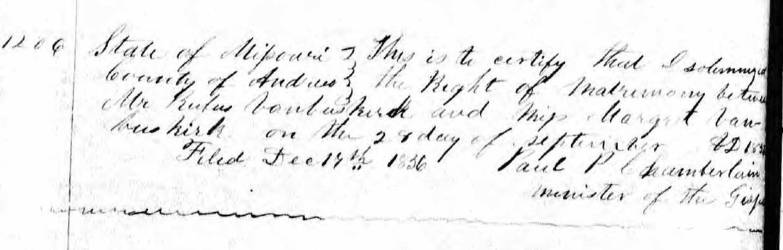 1206 State of Missouri } This is to certify that I solemnized
County of Andrew } the Right of Matrimony between
Mr Rufus Vanbuskirk and Miss Margret Van-
buskirk on the 28 day of September AD 1856
Filed Dec 17th 1856 Paul P Chamberlain
Minister of the Gospel